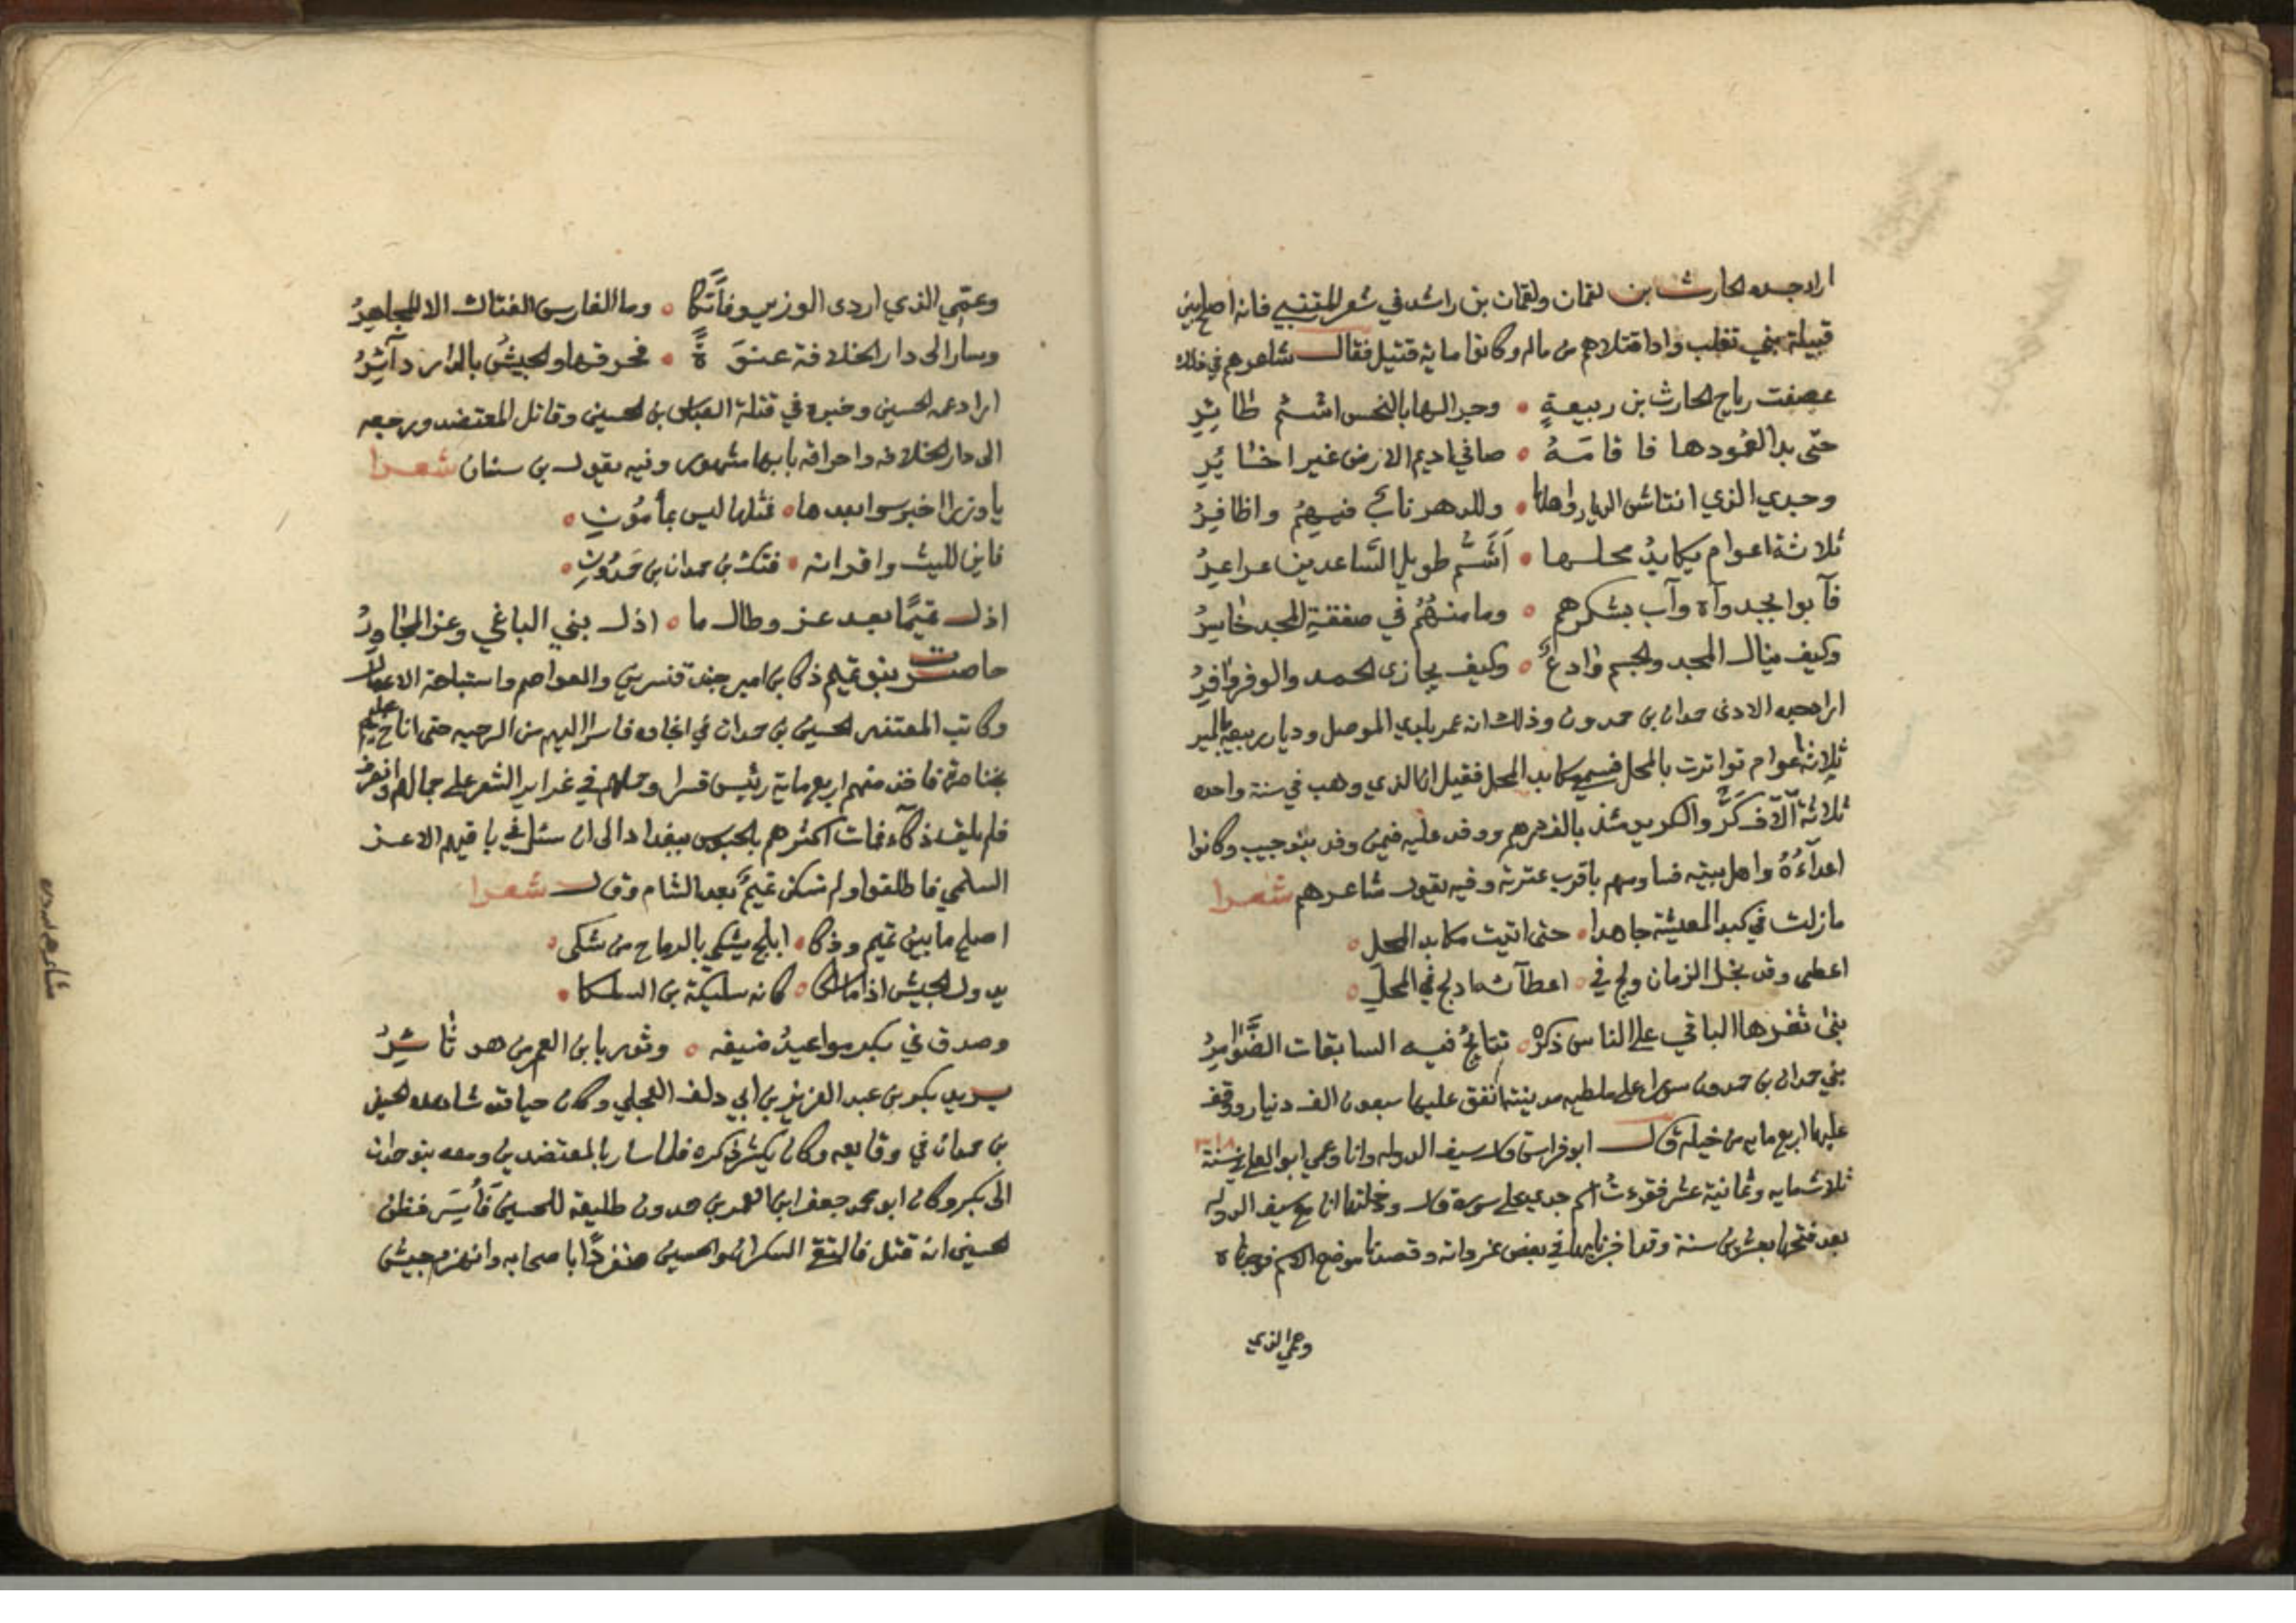 اراد جده الحارث بن لقمان ولقمان بن راشد في شعر المتنبي فانه اصلح بين
قبيلة بني تغلب وادا قتلاهم من ماله وكانوا ماية قتيل فقال شاعرهم في ذلك
عصفت رياح الحارث بن ربيعةٍ ٥ وجرالها بالنحس اشئم طائِرِ
حتى بدا لعمودها فا قامَهُ ٥ صافي اديم الارض غير اخايُرِ
وجدي الذي انتاش الديار واهلها ٥ وللدهر نابٌ فيهمُ واظافيرُ
ثلاثة اعوام يكابدُ محلها ٥ اَشَمُّ طويل السَّاعدين عراعرُ
فآبوا بجدواه وآب بشكرهم ٥ وما منهُمُ في صفقةِ المجد خاسِرُ
وكيف ينال المجد والجسم وادعٌ ٥ وكيف يجازى الحمد والوفر وافِرُ
اراد جده الادنى حمدان بن حمدون وذلك انه عمر بلدي الموصل وديار ربيعه بالمير
ثلاثة اعوام تواترت بالمحل فسمي مكابد المحل فقيل انه الذي وهب في سنة واحده
ثلاثة آلآف كَرٍّ والكر يومئذ بالف درهم ووفد عليه فيمن وفد بنو حبيب وكانوا
اعدآءَهُ واهل بيته فساوسهم باقرب عترته وفيه يقول شاعرهم شعرا
مازلت في كبد المعيشة جاهدا ٥ حتى اتيت مكابد المحل ٥
اعطى وقد بخل الزمان ولج في ٥ اعطآئه مادلج في المحلِ ٥
بنى ثغرها الباقي على الناس ذكرُهُ ٥ نتائجُ فيه السابقات الضَّوَامِرُ
بنى حمدان بن حمدون سورا على ملطيه مدينته انفق عليها سبعون الف دينار ووقف
عليها اربع مايه من خيله قال ابو فراس قال سيف الدوله وانا وعمي ابو العلا في سنة ٣١٨
ثلاثمايه وثمانية عشر فقرءتُ اسم جدي على سوره قال ودخلتها انا مع سيف الدوله
بعد فتحها بعشرين سنة وقد اخربها في بعض غزواته وقصدنا موضع الاسم فوجدناه
وعمي الذي
وعمّي الذي اردى الوزير وفاتَكًا ٥ وما الفارس الفتاك الا المجاهِرُ
وسار الى دار الخلافة عنوَةً ٥ فحرقها والجيشُ بالدار دآئِرُ
اراد عمه الحسين وخبره في قتلة العباس بن الحسين وقاتل المعتضد وبرجعه
الى دار الخلافه واحراقه بابها مشهور وفيه يقول بن سنان شعرا
فمثلها ليس بمأمُونِ ٥
فاين الليث واقرانه ٥ فتكت بن حمدان بن حَمدُونِ ٥
اذل تميمًا بعد عز وطال ما ٥ اذل بني الباغي وعز المجاورُ
حاصرت بنو تميم ذكا بن امير جند قنسرين والعواصم واستباحة الاعمال
وكاتب المعتضد الحسين بن حمدان في انجاده فاسرا اليهم من الرحبه حتى اناخ عليهم
بخناصرة فاخذ منهم اربع ماية رئيس قسرا وحملهم في غداير الشعر على جمالهم وانصرف
فلم يلقه ذكآء فمات اكثرهم بالحبوس ببغداد الى ان سئل في باقيهم الاعز
السلمي فاطلقوا ولم تسكن تميمٌ بعد الشام وقال شعرا
اصلح ما بين تميم وذكا ٥ ابلج يشكي بالرماح من شكى ٥
يدول الجيش اذا ما سلكا ٥ كانه سليكة بن السلكا ٥
وصدق في بكر مواعيدُ ضيفه ٥ وثور بابن العم من هو ثائِرُ
يريد بكر بن عبد العزيز بن ابي دلف العجلي وكان حيافته شاهده الحسين
بن حمدان في وقايعه وكان يكثر ذكره فلما سار بالمعتضدين ومعه بنو حمدان
الى بكر وكان ابو محمد جعفر ابن محمد بن حمدون طليعة للحسين فَأُسِرَ فظن
الحسين انه قتل فالتقى السكران والحسين منفردًا باصحابه وانهزم جيش